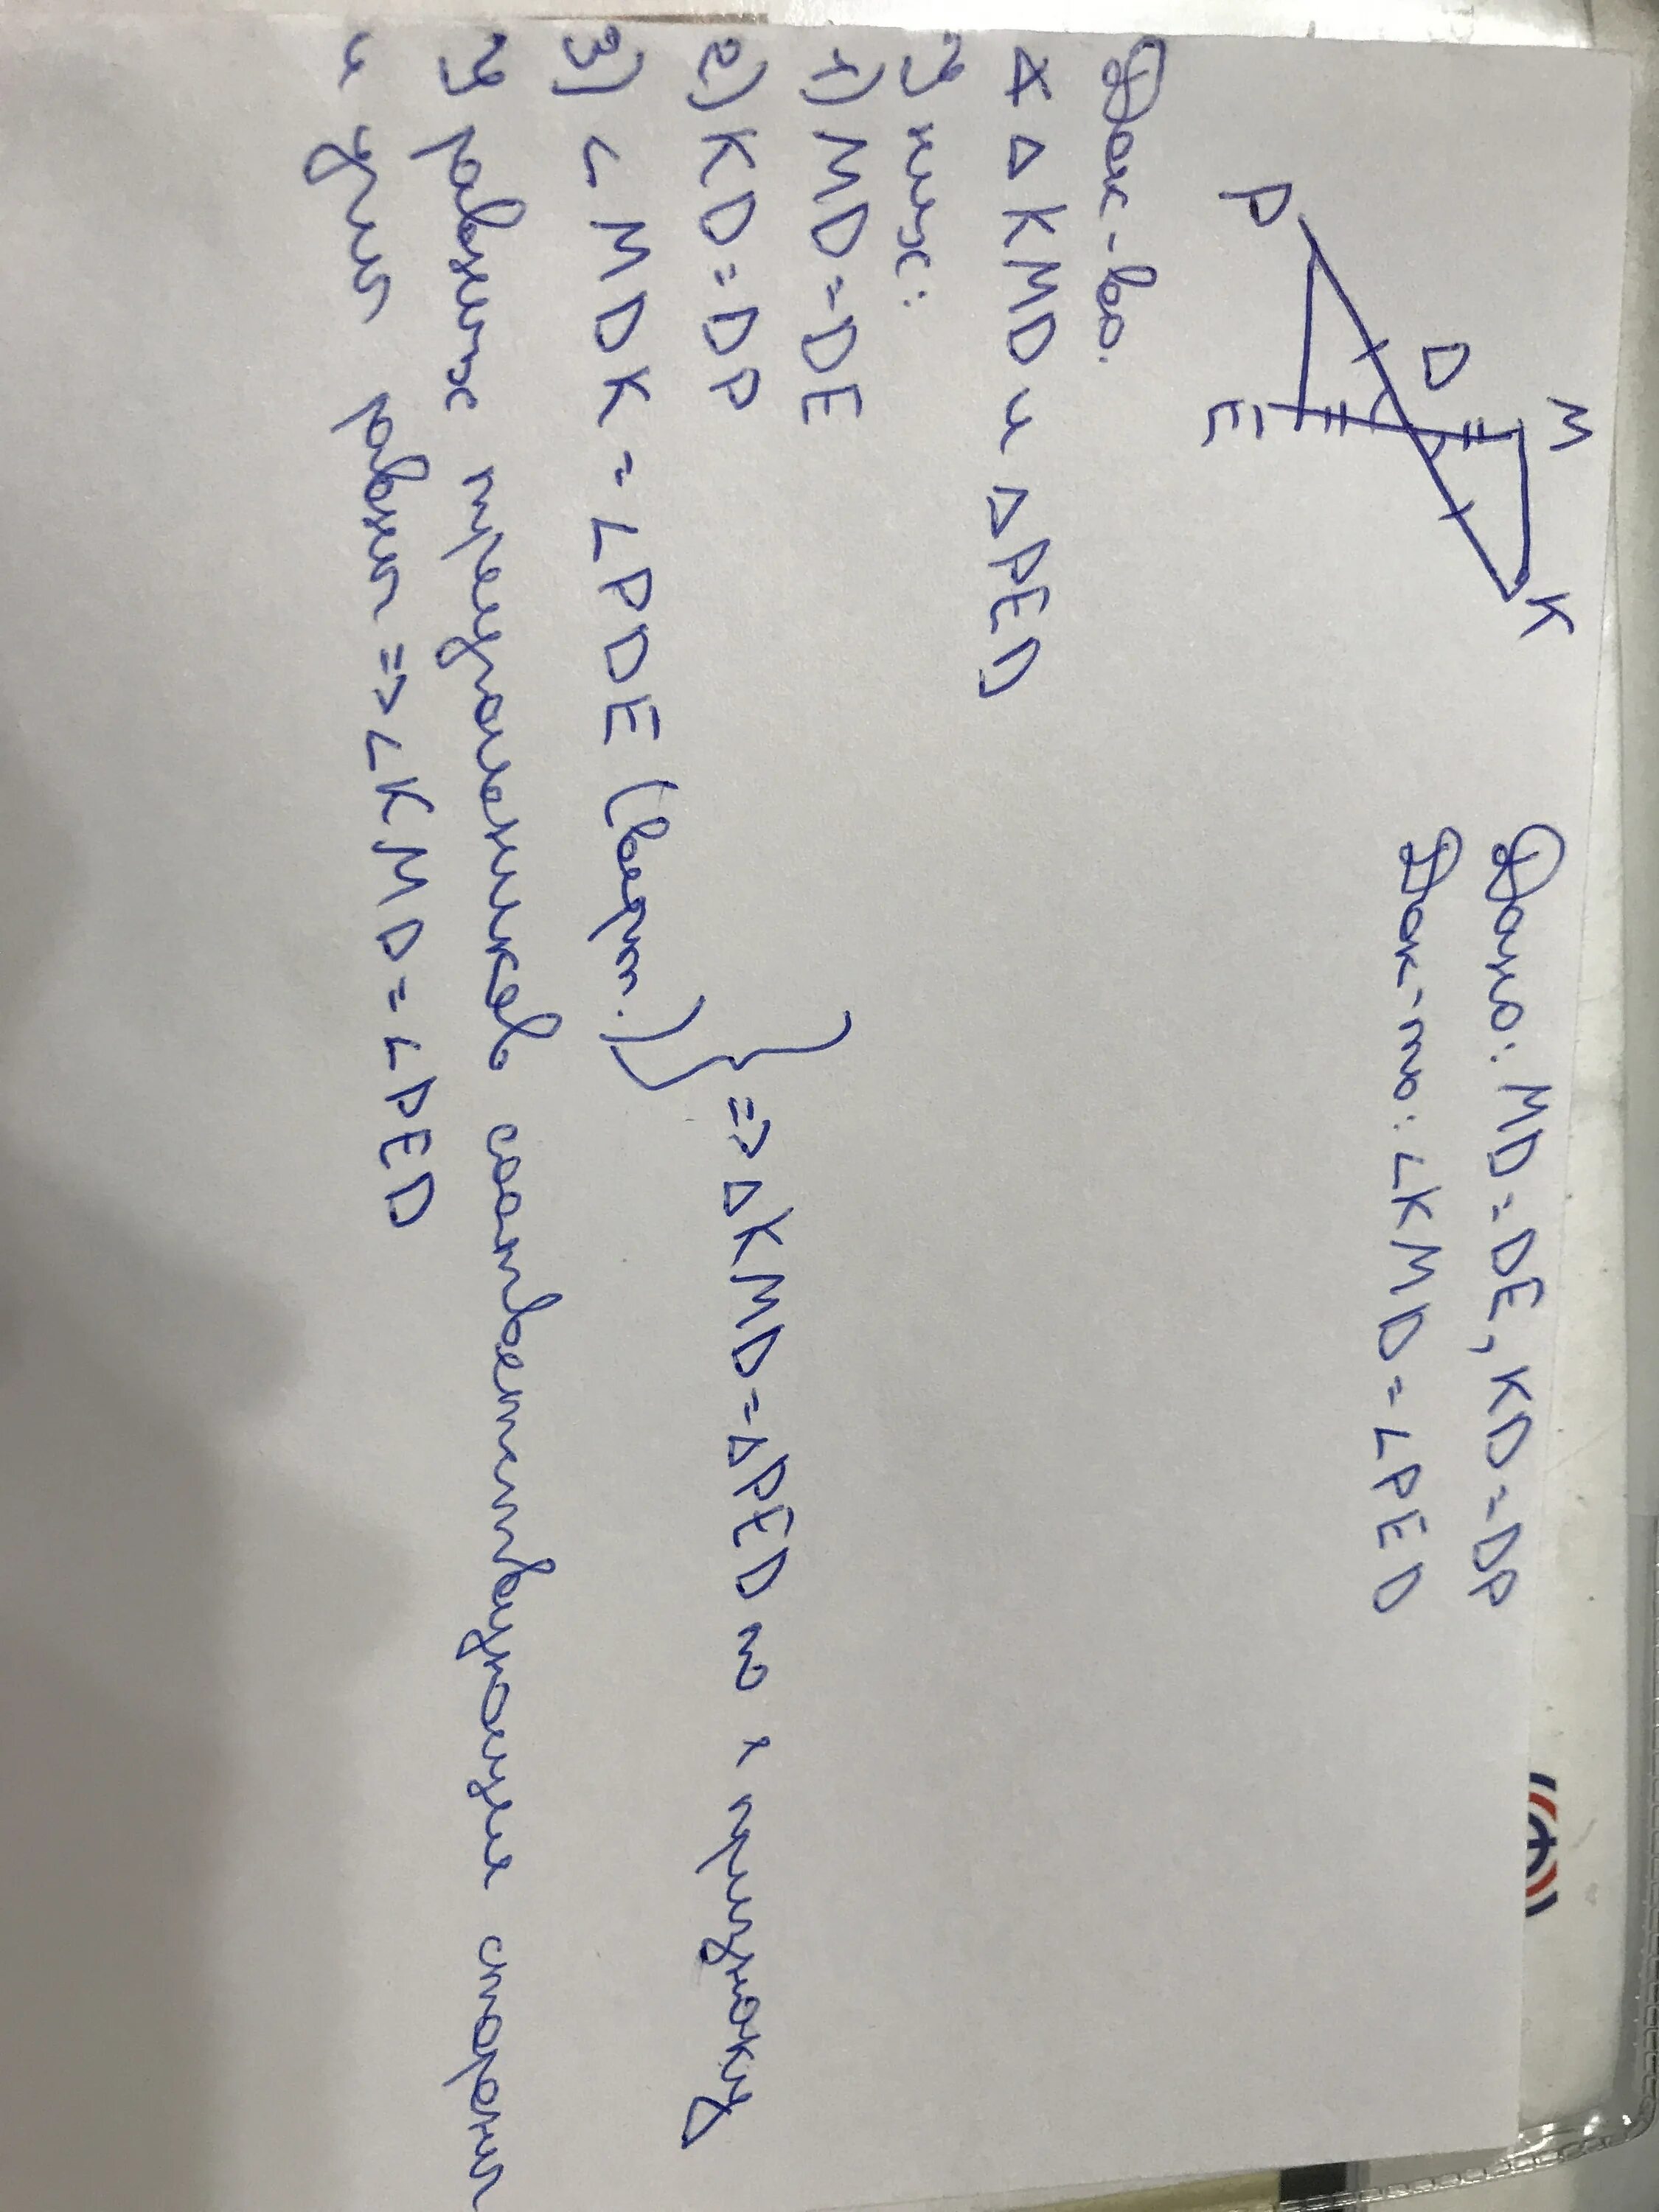 M
K
D
P
E
Дано: MD=DE, KD=DP
Док-ть: ∠KMD=∠PED
Док-во.
∆ KMD и ∆ PED
У них:
1) MD=DE
2) KD=DP
3) ∠MDK=∠PDE (верт.)
=> ∆KMD=∆PED по признаку
У равных треугольников соответствующие стороны
и углы равны => ∠KMD=∠PED